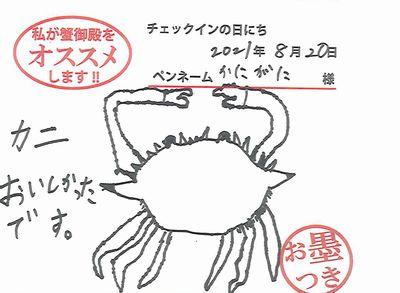 私が蟹御殿を
オススメ
します!!
チェックインの日にち
2021年 8月20日
ペンネーム かにがに 様
カニ
おいしかった
です。
お墨
つき